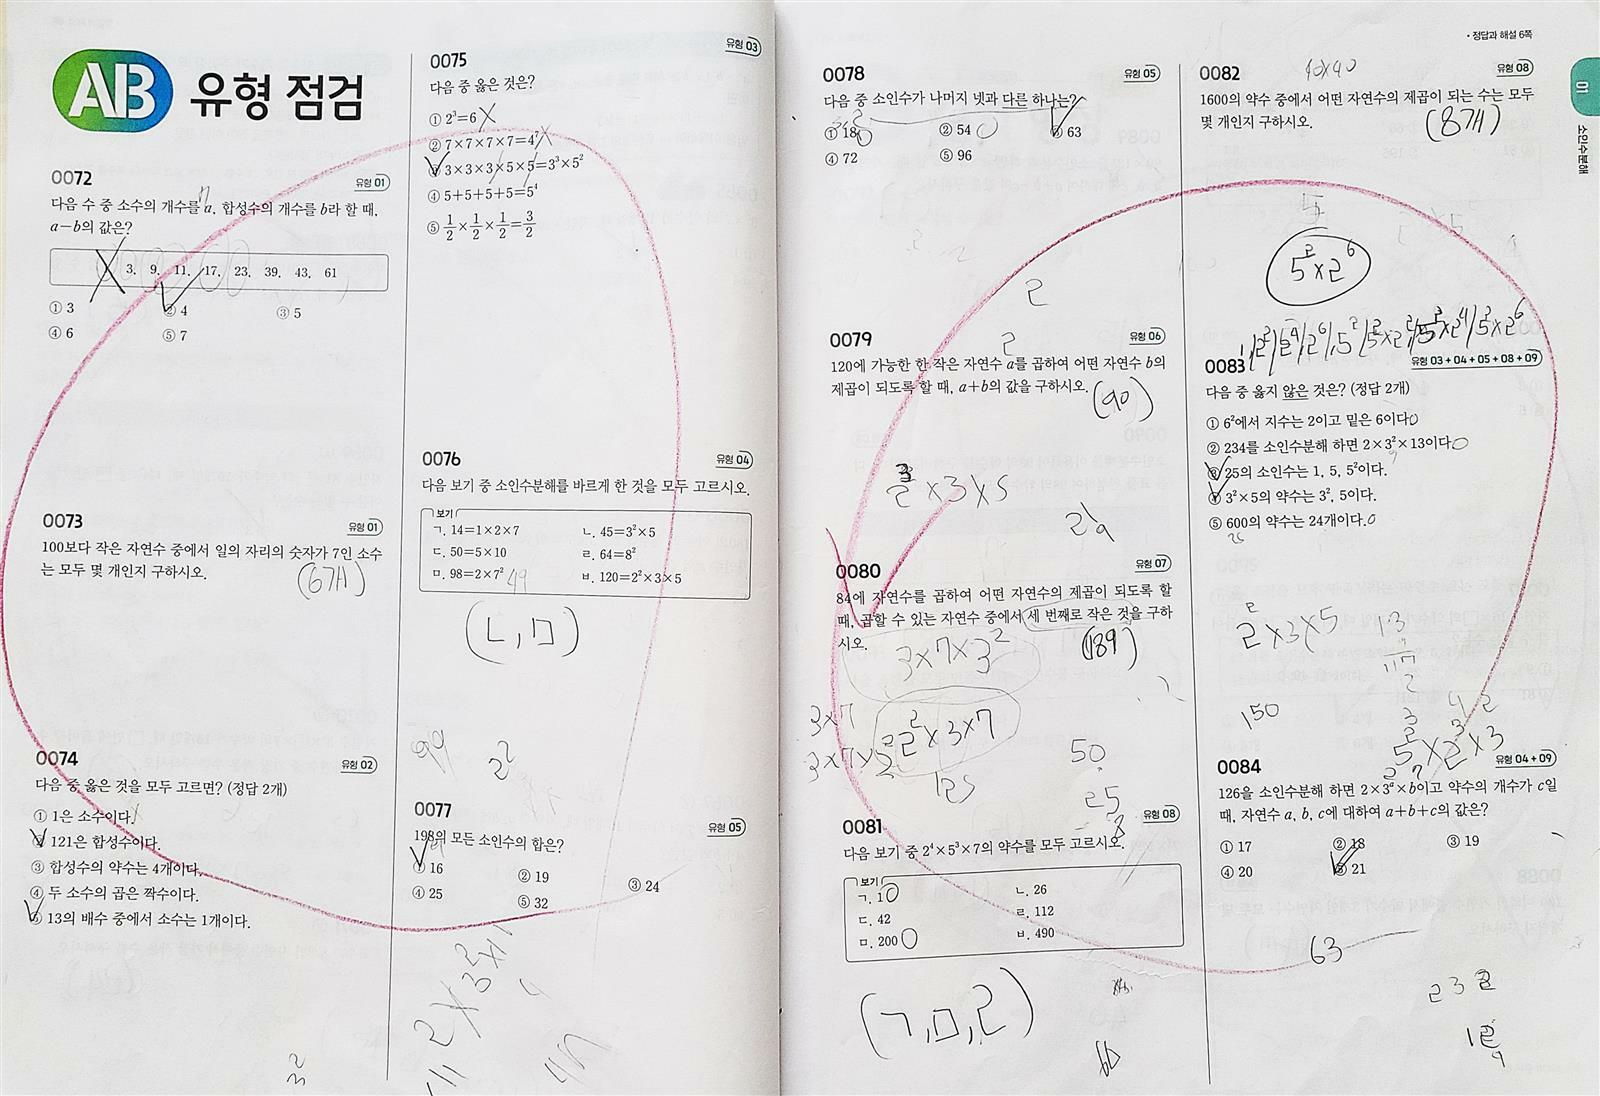 AB 유형 점검
0072 유형 01
다음 수 중 소수의 개수를 a, 합성수의 개수를 b라 할 때,
a-b의 값은?
3, 9, 11, 17, 23, 39, 43, 61
① 3 ② 4 ③ 5
④ 6 ⑤ 7
0073 유형 01
100보다 작은 자연수 중에서 일의 자리의 숫자가 7인 소수
는 모두 몇 개인지 구하시오.
(6개)
0074 유형 02
다음 중 옳은 것을 모두 고르면? (정답 2개)
① 1은 소수이다.
② 121은 합성수이다.
③ 합성수의 약수는 4개이다.
④ 두 소수의 곱은 짝수이다.
⑤ 13의 배수 중에서 소수는 1개이다.
0075 유형 03
다음 중 옳은 것은?
① 2³=6
② 7×7×7×7=4⁷
③ 3×3×3×5×5=3³×5²
④ 5+5+5+5=5⁴
⑤ 1/2×1/2×1/2=3/2
0076 유형 04
다음 보기 중 소인수분해를 바르게 한 것을 모두 고르시오.
보기
ㄱ. 14=1×2×7 ㄴ. 45=3²×5
ㄷ. 50=5×10 ㄹ. 64=8²
ㅁ. 98=2×7² 49 ㅂ. 120=2²×3×5
(ㄴ, ㅁ)
99 2²
0077 유형 05
198의 모든 소인수의 합은?
① 16 ② 19 ③ 24
④ 25 ⑤ 32
• 정답과 해설 6쪽
01 소인수분해
0078 유형 05
다음 중 소인수가 나머지 넷과 다른 하나는?
① 18 ② 54 ③ 63
④ 72 ⑤ 96
2
2
0079 유형 06
120에 가능한 한 작은 자연수 a를 곱하여 어떤 자연수 b의
제곱이 되도록 할 때, a+b의 값을 구하시오.
(90)
2³×3×5
0080 유형 07
84에 자연수를 곱하여 어떤 자연수의 제곱이 되도록 할
때, 곱할 수 있는 자연수 중에서 세 번째로 작은 것을 구하
시오.
(189)
3×7×3²
3×7
3×7×2²
2²×3×7
50
125
25
0081 유형 08
다음 보기 중 2⁴×5³×7의 약수를 모두 고르시오.
보기
ㄱ. 1 ㄴ. 26
ㄷ. 42 ㄹ. 112
ㅁ. 200 ㅂ. 490
(ㄱ, ㅁ, ㄹ)
40×40
0082 유형 08
1600의 약수 중에서 어떤 자연수의 제곱이 되는 수는 모두
몇 개인지 구하시오.
(8개)
5²×2⁶
1, 2², 2⁴, 2⁶, 5², 5²×2², 5²×2⁴, 5²×2⁶
0083 유형 03 + 04 + 05 + 08 + 09
다음 중 옳지 않은 것은? (정답 2개)
① 6²에서 지수는 2이고 밑은 6이다.
② 234를 소인수분해 하면 2×3²×13이다.
③ 25의 소인수는 1, 5, 5²이다.
④ 3²×5의 약수는 3², 5이다.
⑤ 600의 약수는 24개이다.
2²×3×5
13
9
117
150
3 4 2
5²×2³×3
0084 유형 04 + 09
126을 소인수분해 하면 2×3ᵃ×b이고 약수의 개수가 c일
때, 자연수 a, b, c에 대하여 a+b+c의 값은?
① 17 ② 18 ③ 19
④ 20 ⑤ 21
63